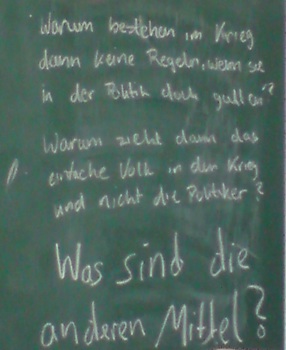 Warum bestehen im Krieg
dann keine Regeln, wenn sie
in der Politik doch galten?
Warum zieht dann das
einfache Volk in den Krieg
und nicht die Politiker?
Was sind die
anderen Mittel?